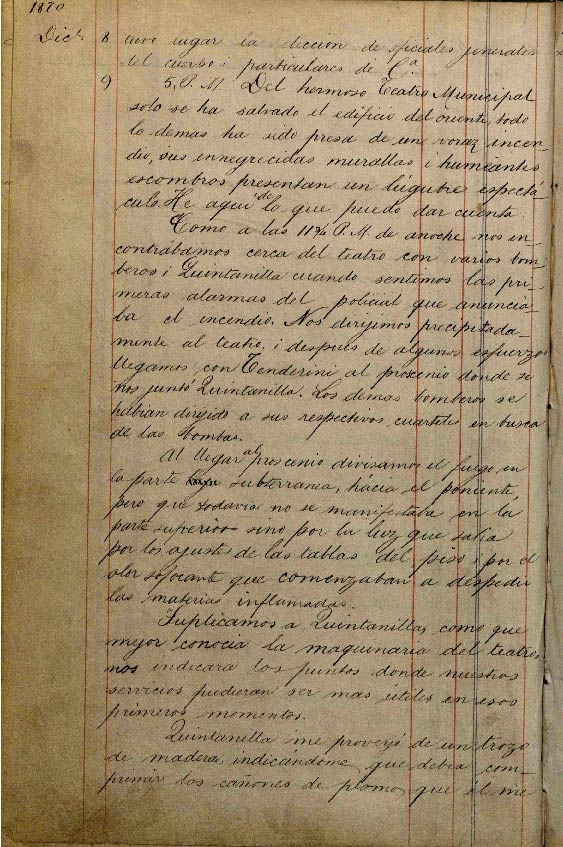 1870
Dice. 8 tuvo lugar la eleccion de oficiales jenerales
del cuerpo i particulares de Ca.
9 5. P. M. Del hermoso Teatro Municipal
solo se ha salvado el edificio del oriente, todo
lo demas ha sido presa de un voraz incen-
dio, sus ennegrecidas murallas i humeantes
escombros presentan un lúgubre espectá-
culo. He aqui de lo que puedo dar cuenta.
Como a las 11¾ P. M. de anoche nos en-
contrábamos cerca del teatro con varios bom-
beros i Quintanilla cuando sentimos las pri-
meras alarmas del policial que anuncia-
ba el incendio. Nos dirijimos precipitada-
mente al teatro, i despues de algunos esfuerzos
llegamos con Tenderini al proscenio donde se
nos juntó Quintanilla. Los demas bomberos se
habian dirijido a sus respectivos cuarteles en busca
de las bombas.
Al llegar al proscenio divisamos el fuego en
la parte subterranea, hácia el poniente,
pero que todavia no se manifestaba en la
parte superior sino por la luz que salia
por los ajustes de las tablas del piso i por el
olor sofocante que comenzaban a despedir
las materia inflamadas.
Suplicamos a Quintanilla, como que
mejor conocia la maquinaria del teatro,
nos indicara los puntos donde nuestros
servicios pudieran ser mas utiles en esos
primeros momentos.
Quintanilla me proveyó de un trozo
de madera, indicándome que debia com-
primir los cañones de plomo, que él me